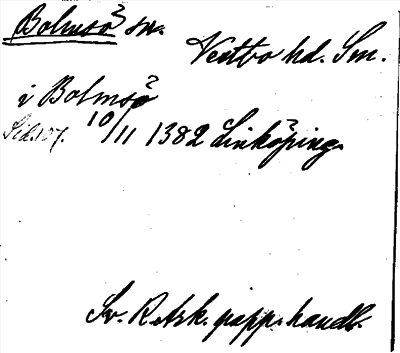 Bolmsö sn.
Vestbo hd. Sm.
i Bolmsö
10/11 1382 Linköping.
Sv. R. Ark. papp. handl.